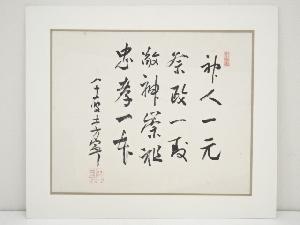 神人一元
祭政一致
敬神崇祖
忠孝一本
八十四叟土方寧